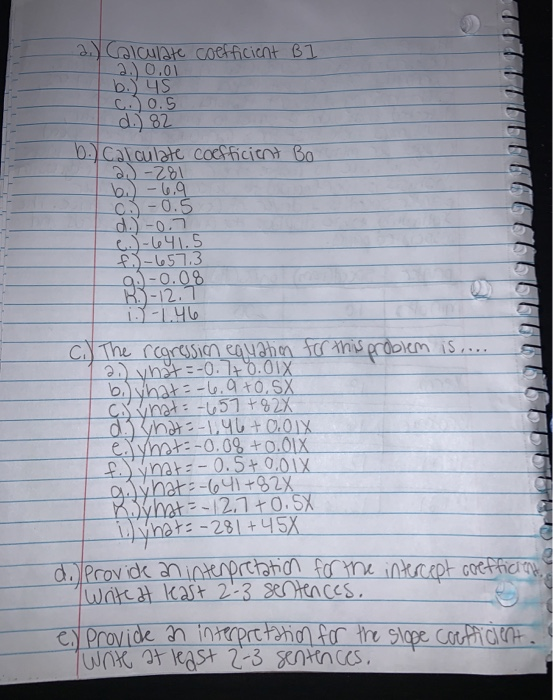 a.) Calculate coefficient B1
a.) 0.01
b.) 45
c.) 0.5
d.) 82
b.) Calculate coefficient Bo
a.) -281
b.) -6.9
c.) -0.5
d.) -0.7
e.) -641.5
f.) -657.3
g.) -0.08
h.) -12.7
i.) -1.46
c.) The regression equation for this problem is....
a.) yhat = -0.7+0.01X
b.) yhat = -6.9+0.5X
c.) yhat = -657+82X
d.) yhat = -1.46+0.01X
e.) yhat = -0.08+0.01X
f.) yhat = -0.5+0.01X
g.) yhat = -641+82X
h.) yhat = -12.7+0.5X
i.) yhat = -281+45X
d.) Provide an interpretation for the intercept coefficient.
Write at least 2-3 sentences.
e.) Provide an interpretation for the slope coefficient.
Write at least 2-3 sentences.